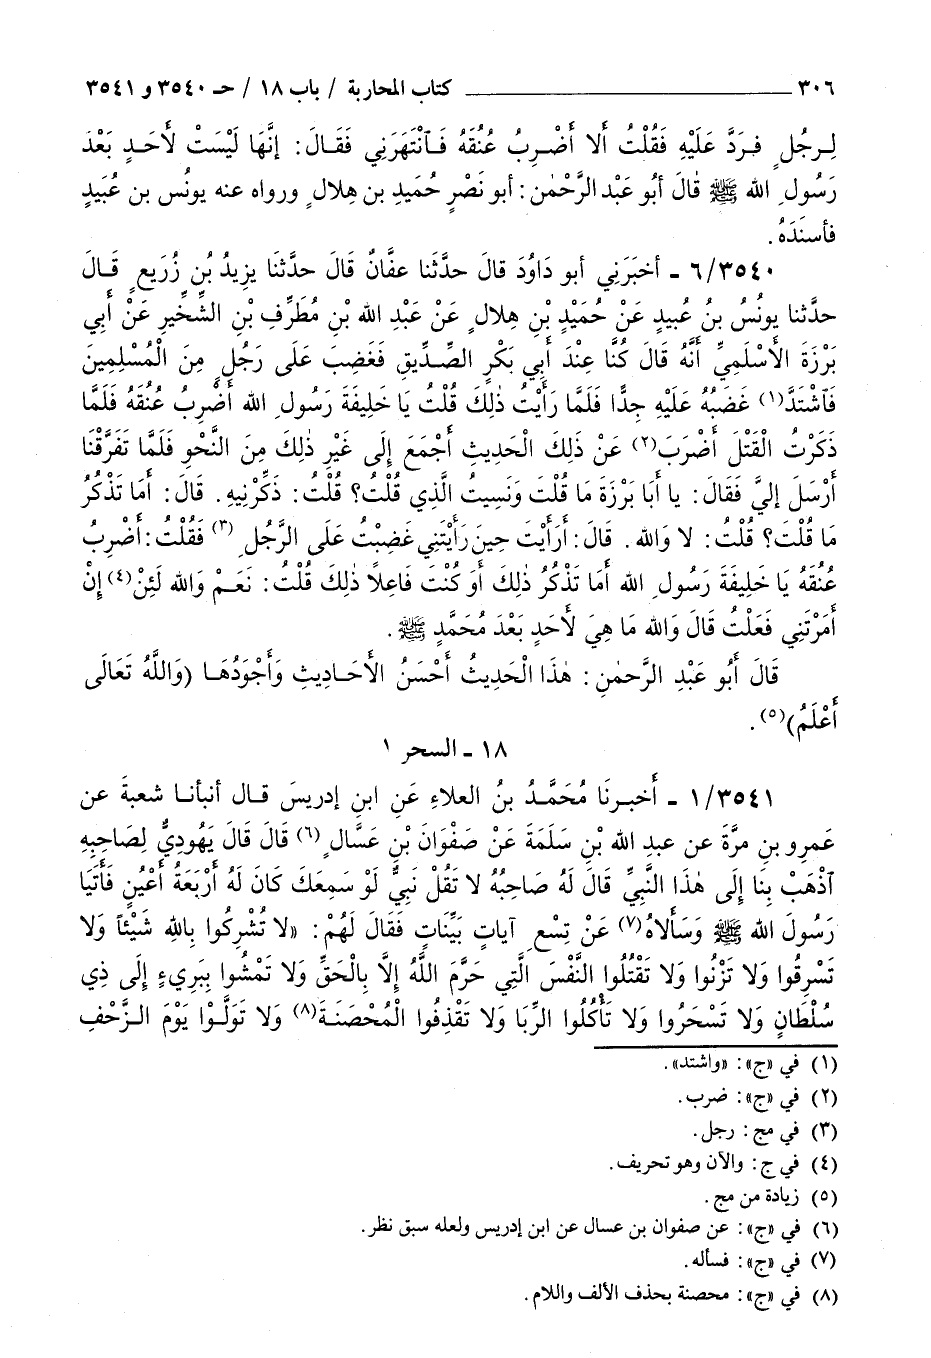 ٣٠٦ ــــــــــــ كتاب المحاربة / باب ١٨ / حـ ٣٥٤٠ و ٣٥٤١
لِرجُلٍ فردَّ عَلَيْهِ فَقُلْتُ أَلا أَضْرِبُ عُنُقَهُ فَٱنْتَهَرَنِي فَقَالَ: إِنَّهَا لَيْسَتْ لأَحدٍ بَعْدَ
رَسُولِ الله ﷺ قَالَ أبُو عَبْد الرَّحْمٰن: أبو نَصْرٍ حُمَيدِ بن هلال ٍ ورواه عنه يونُس بن عُبَيدٍ
فأسنَدَهُ.
٦/٣٥٤٠ ـ أخبَرَنِي أبو دَاوُدَ قالَ حدَّثَنا عفَّانُ قَالَ حدَّثَنَا يزِيدُ بْنِ زُرَيعٍ قَـالَ
حدَّثنا يونُسُ بنُ عُبيدٍ عَنْ حُمَيْدِ بْنِ هِلالٍ عَنْ عَبْدِ الله بْنِ مُطَرِّفِ بْنِ الشخِّيرِ عَنْ أَبي
بَرْزَةَ الأَسْلَمِيِّ أَنَّهُ قَالَ كُنَّا عِنْدَ أَبِي بَكْرٍ الصِّدِّيقِ فَغَضِبَ عَلَى رَجُلٍ مِنَ الْمُسْلِمِينَ
فَٱشْتَدَّ(١) غَضَبُهُ عَلَيْهِ جِدًّا فَلَمَّا رَأَيْتُ ذٰلِكَ قُلْتُ يَا خَلِيفَةَ رَسُولِ الله أَضْرِبُ عُنُقَهُ فَلَمَّا
ذَكَرْتُ الْقَتْلَ أَضْرَبَ(٢) عَنْ ذَلِكَ الْحَدِيثِ أَجْمَعَ إِلَى غَيْرِ ذٰلِكَ مِنَ النَّحْوِ فَلَمَّا تَفَرَّقْنَا
أَرْسَلَ إليَّ فَقَالَ: يا أَبَا بَرْزَةَ مَا قُلْتَ وَنَسِيتُ الَّذِي قُلْتُ؟ قُلْتُ: ذَكِّرْنِيهِ. قَالَ: أَمَا تَذْكُرُ
مَا قُلْتَ؟ قُلْتُ: لا وَالله. قَالَ: أَرَأَيْتَ حِينَ رَأَيْتَنِي غَضِبْتُ عَلَى الرَّجُلِ(٣) فَقُلْتُ: أَضْرِبُ
عُنُقَهُ يَا خَلِيفَةَ رَسُولِ الله أَمَا تَذْكُرُ ذٰلِكَ أَوَ كُنْتَ فَاعِلاً ذٰلِكَ قُلْتُ: نَعَمْ وَالله لَئِنْ(٤) إِنْ
أَمَرْتَنِي فَعَلْتُ قَالَ وَالله مَا هِيَ لأَحَدٍ بَعْدَ مُحَمَّدٍ ﷺ.
قَالَ أَبُو عَبْدِ الرَّحمٰنِ: هٰذَا الْحَدِيثُ أَحْسَنُ الأَحَادِيثِ وَأَجْوَدُهَا (وَاللَّهُ تَعَالَى
أَعْلَمُ)(٥).
١٨ ـ السحر ١
١/٣٥٤١ ـ أَخبرنَا مُحَمَّدُ بنُ العلاءِ عَنِ ابنِ إدريسَ قال أنبأنا شعبةَ عن
عَمرِو بنِ مرَّةَ عن عبدِ الله بْنِ سَلَمَةَ عَنْ صَفْوَانَ بْنِ عَسَّالٍ(٦) قَالَ قَالَ يَهُودِيٌّ لِصَاحِبِهِ
ٱذْهَبْ بِنَا إِلَى هٰذَا النَّبِيِّ قَالَ لَهُ صَاحِبُهُ لا تَقُلْ نَبِيٌّ لَوْ سَمِعَكَ كَانَ لَهُ أَرْبَعَةُ أَعْيُنٍ فَأَتَيَا
رَسُولَ الله ﷺ وَسَأَلاهُ(٧) عَنْ تِسْعِ آياتٍ بَيِّنَاتٍ فَقَالَ لَهُمْ: «لا تُشْرِكُوا بِاللهِ شَيْئاً وَلا
تَسْرِقُوا وَلا تَزْنُوا وَلا تَقْتُلُوا النَّفْسَ الَّتِي حَرَّمَ اللَّهُ إِلَّا بِالْحَقِّ وَلا تَمْشُوا بِبَرِيءٍ إِلَى ذِي
سُلْطَانٍ وَلا تَسْحَرُوا وَلا تَأْكُلُوا الرِّبَا وَلا تَقْذِفُوا الْمُحْصَنَةَ(٨) وَلا تَوَلَّوْا يَوْمَ الزَّحْفِ
(١) في «ج»: «واشتد».
(٢) في «ج»: ضرب.
(٣) في مج: رجل.
(٤) في ج: والآن وهو تحريف.
(٥) زيادة من مج.
(٦) في «ج»: عن صفوان بن عسال عن ابن إدريس ولعله سبق نظر.
(٧) في «ج»: فسأله.
(٨) في «ج»: محصنة بحذف الألف واللام.